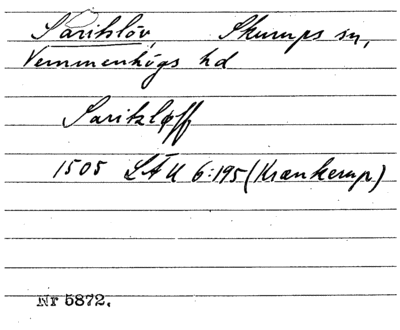 Saritslöv, Skurups sn,
Vemmenhögs hd
Saritzløff
1505 LÄU 6:195 (Krænkerup)
Nr 5872.